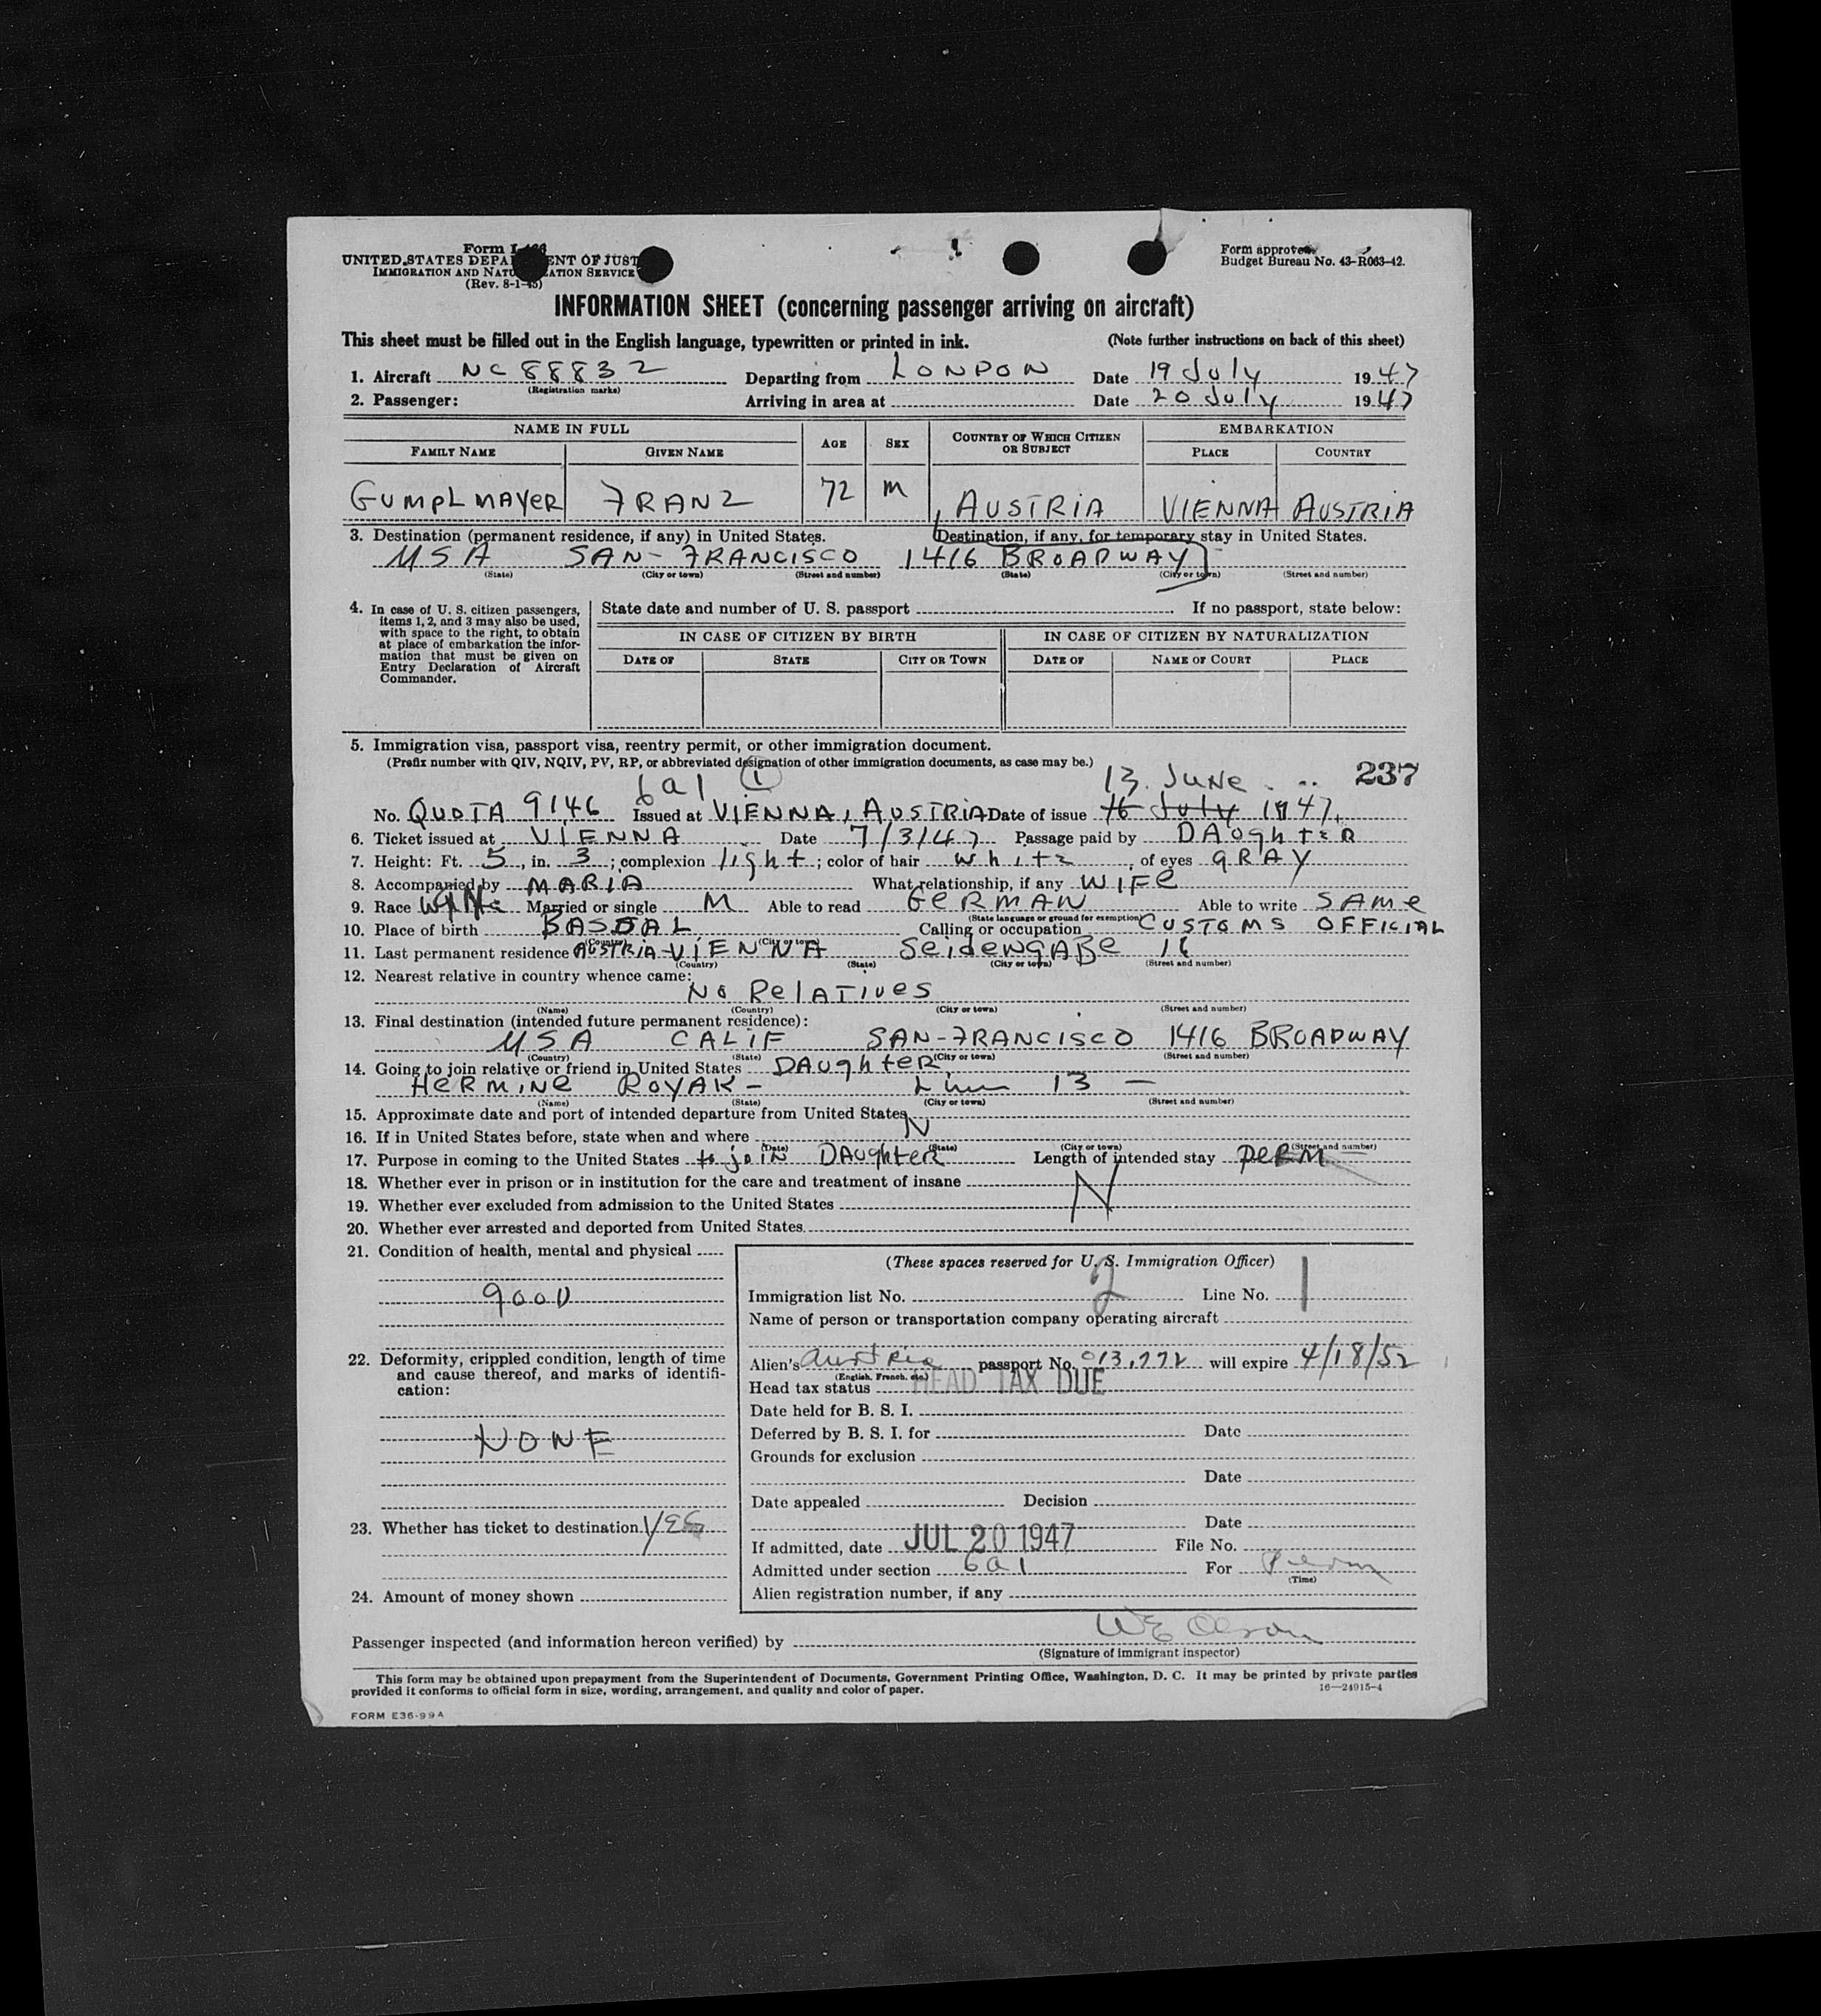 Form I-466
UNITED STATES DEPARTMENT OF JUSTICE
IMMIGRATION AND NATURALIZATION SERVICE
(Rev. 8-1-45)
Form approved.
Budget Bureau No. 43-R063-42.
INFORMATION SHEET (concerning passenger arriving on aircraft)
This sheet must be filled out in the English language, typewritten or printed in ink. (Note further instructions on back of this sheet)
1. Aircraft NC 88832 Departing from LONDON Date 19 July 1947
(Registration marks)
2. Passenger: Arriving in area at Date 20 July 1947
NAME IN FULL AGE SEX COUNTRY OF WHICH CITIZEN OR SUBJECT EMBARKATION
FAMILY NAME GIVEN NAME PLACE COUNTRY
GUMPLMAYER FRANZ 72 M AUSTRIA VIENNA AUSTRIA
3. Destination (permanent residence, if any) in United States. Destination, if any, for temporary stay in United States.
USA SAN-FRANCISCO 1416 BROADWAY
(State) (City or town) (Street and number) (State) (City or town) (Street and number)
4. In case of U. S. citizen passengers, items 1, 2, and 3 may also be used, with space to the right, to obtain at place of embarkation the information that must be given on Entry Declaration of Aircraft Commander.
State date and number of U. S. passport If no passport, state below:
IN CASE OF CITIZEN BY BIRTH IN CASE OF CITIZEN BY NATURALIZATION
DATE OF STATE CITY OR TOWN DATE OF NAME OF COURT PLACE
5. Immigration visa, passport visa, reentry permit, or other immigration document.
(Prefix number with QIV, NQIV, PV, RP, or abbreviated designation of other immigration documents, as case may be.)
6a1 1 13 JUNE 237
No. QUOTA 9146 Issued at VIENNA, AUSTRIA Date of issue 16 July 1947
6. Ticket issued at VIENNA Date 7/3/47 Passage paid by DAUghTER
7. Height: Ft. 5, in. 3; complexion light; color of hair white, of eyes GRAY
8. Accompanied by MARIA What relationship, if any WIFE
9. Race White Married or single M Able to read GERMAN Able to write SAME
(State language or ground for exemption)
10. Place of birth Calling or occupation CUSTOMS OFFICIAL
(Country) (City or town)
11. Last permanent residence AUSTRIA-VIENNA SEIDENGASSE 16
(Country) (State) (City or town) (Street and number)
12. Nearest relative in country whence came:
NO RELATIVES
(Name) (Country) (City or town) (Street and number)
13. Final destination (intended future permanent residence):
USA CALIF SAN-FRANCISCO 1416 BROADWAY
(Country) (State) (City or town) (Street and number)
14. Going to join relative or friend in United States DAUghTER
HERMINE ROYAK - Line 13 —
(Name) (State) (City or town) (Street and number)
15. Approximate date and port of intended departure from United States
16. If in United States before, state when and where N
(Date) (State) (City or town) (Street and number)
17. Purpose in coming to the United States to join DAUghTER Length of intended stay PERM
18. Whether ever in prison or in institution for the care and treatment of insane
19. Whether ever excluded from admission to the United States N
20. Whether ever arrested and deported from United States
21. Condition of health, mental and physical
GOOD
22. Deformity, crippled condition, length of time and cause thereof, and marks of identification:
NONE
23. Whether has ticket to destination YES
24. Amount of money shown
(These spaces reserved for U. S. Immigration Officer)
Immigration list No. 2 Line No. 1
Name of person or transportation company operating aircraft
Alien's Austria passport No. 013,772 will expire 4/18/52
(English, French, etc.)
Head tax status HEAD TAX DUE
Date held for B. S. I.
Deferred by B. S. I. for Date
Grounds for exclusion
Date
Date appealed Decision
Date
If admitted, date JUL 20 1947 File No.
Admitted under section 6a1 For Perm
(Time)
Alien registration number, if any
Passenger inspected (and information hereon verified) by WE Olson
(Signature of immigrant inspector)
This form may be obtained upon prepayment from the Superintendent of Documents, Government Printing Office, Washington, D. C. It may be printed by private parties
provided it conforms to official form in size, wording, arrangement, and quality and color of paper. 16—24915-4
FORM E36-99A